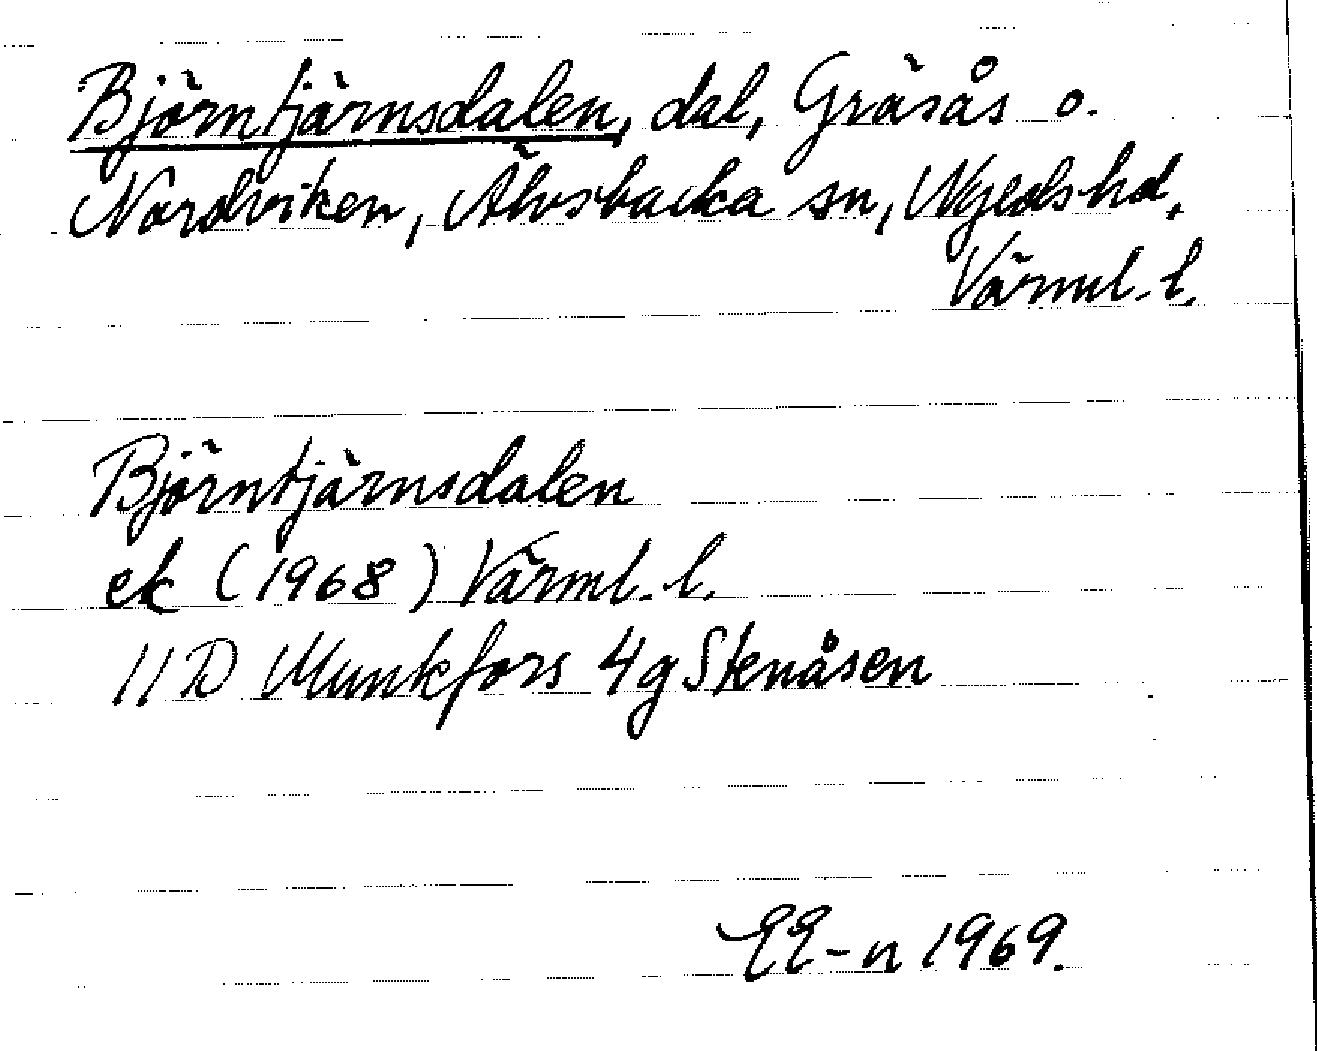 Björntjärnsdalen, dal, Gräsås o.
Nordviken, Älvsbacka sn, Nyedshd,
Värml. l.
Björntjärnsdalen
ek (1968) Värml. l.
11D Munkfors 4g Stenåsen
EE-n 1969.